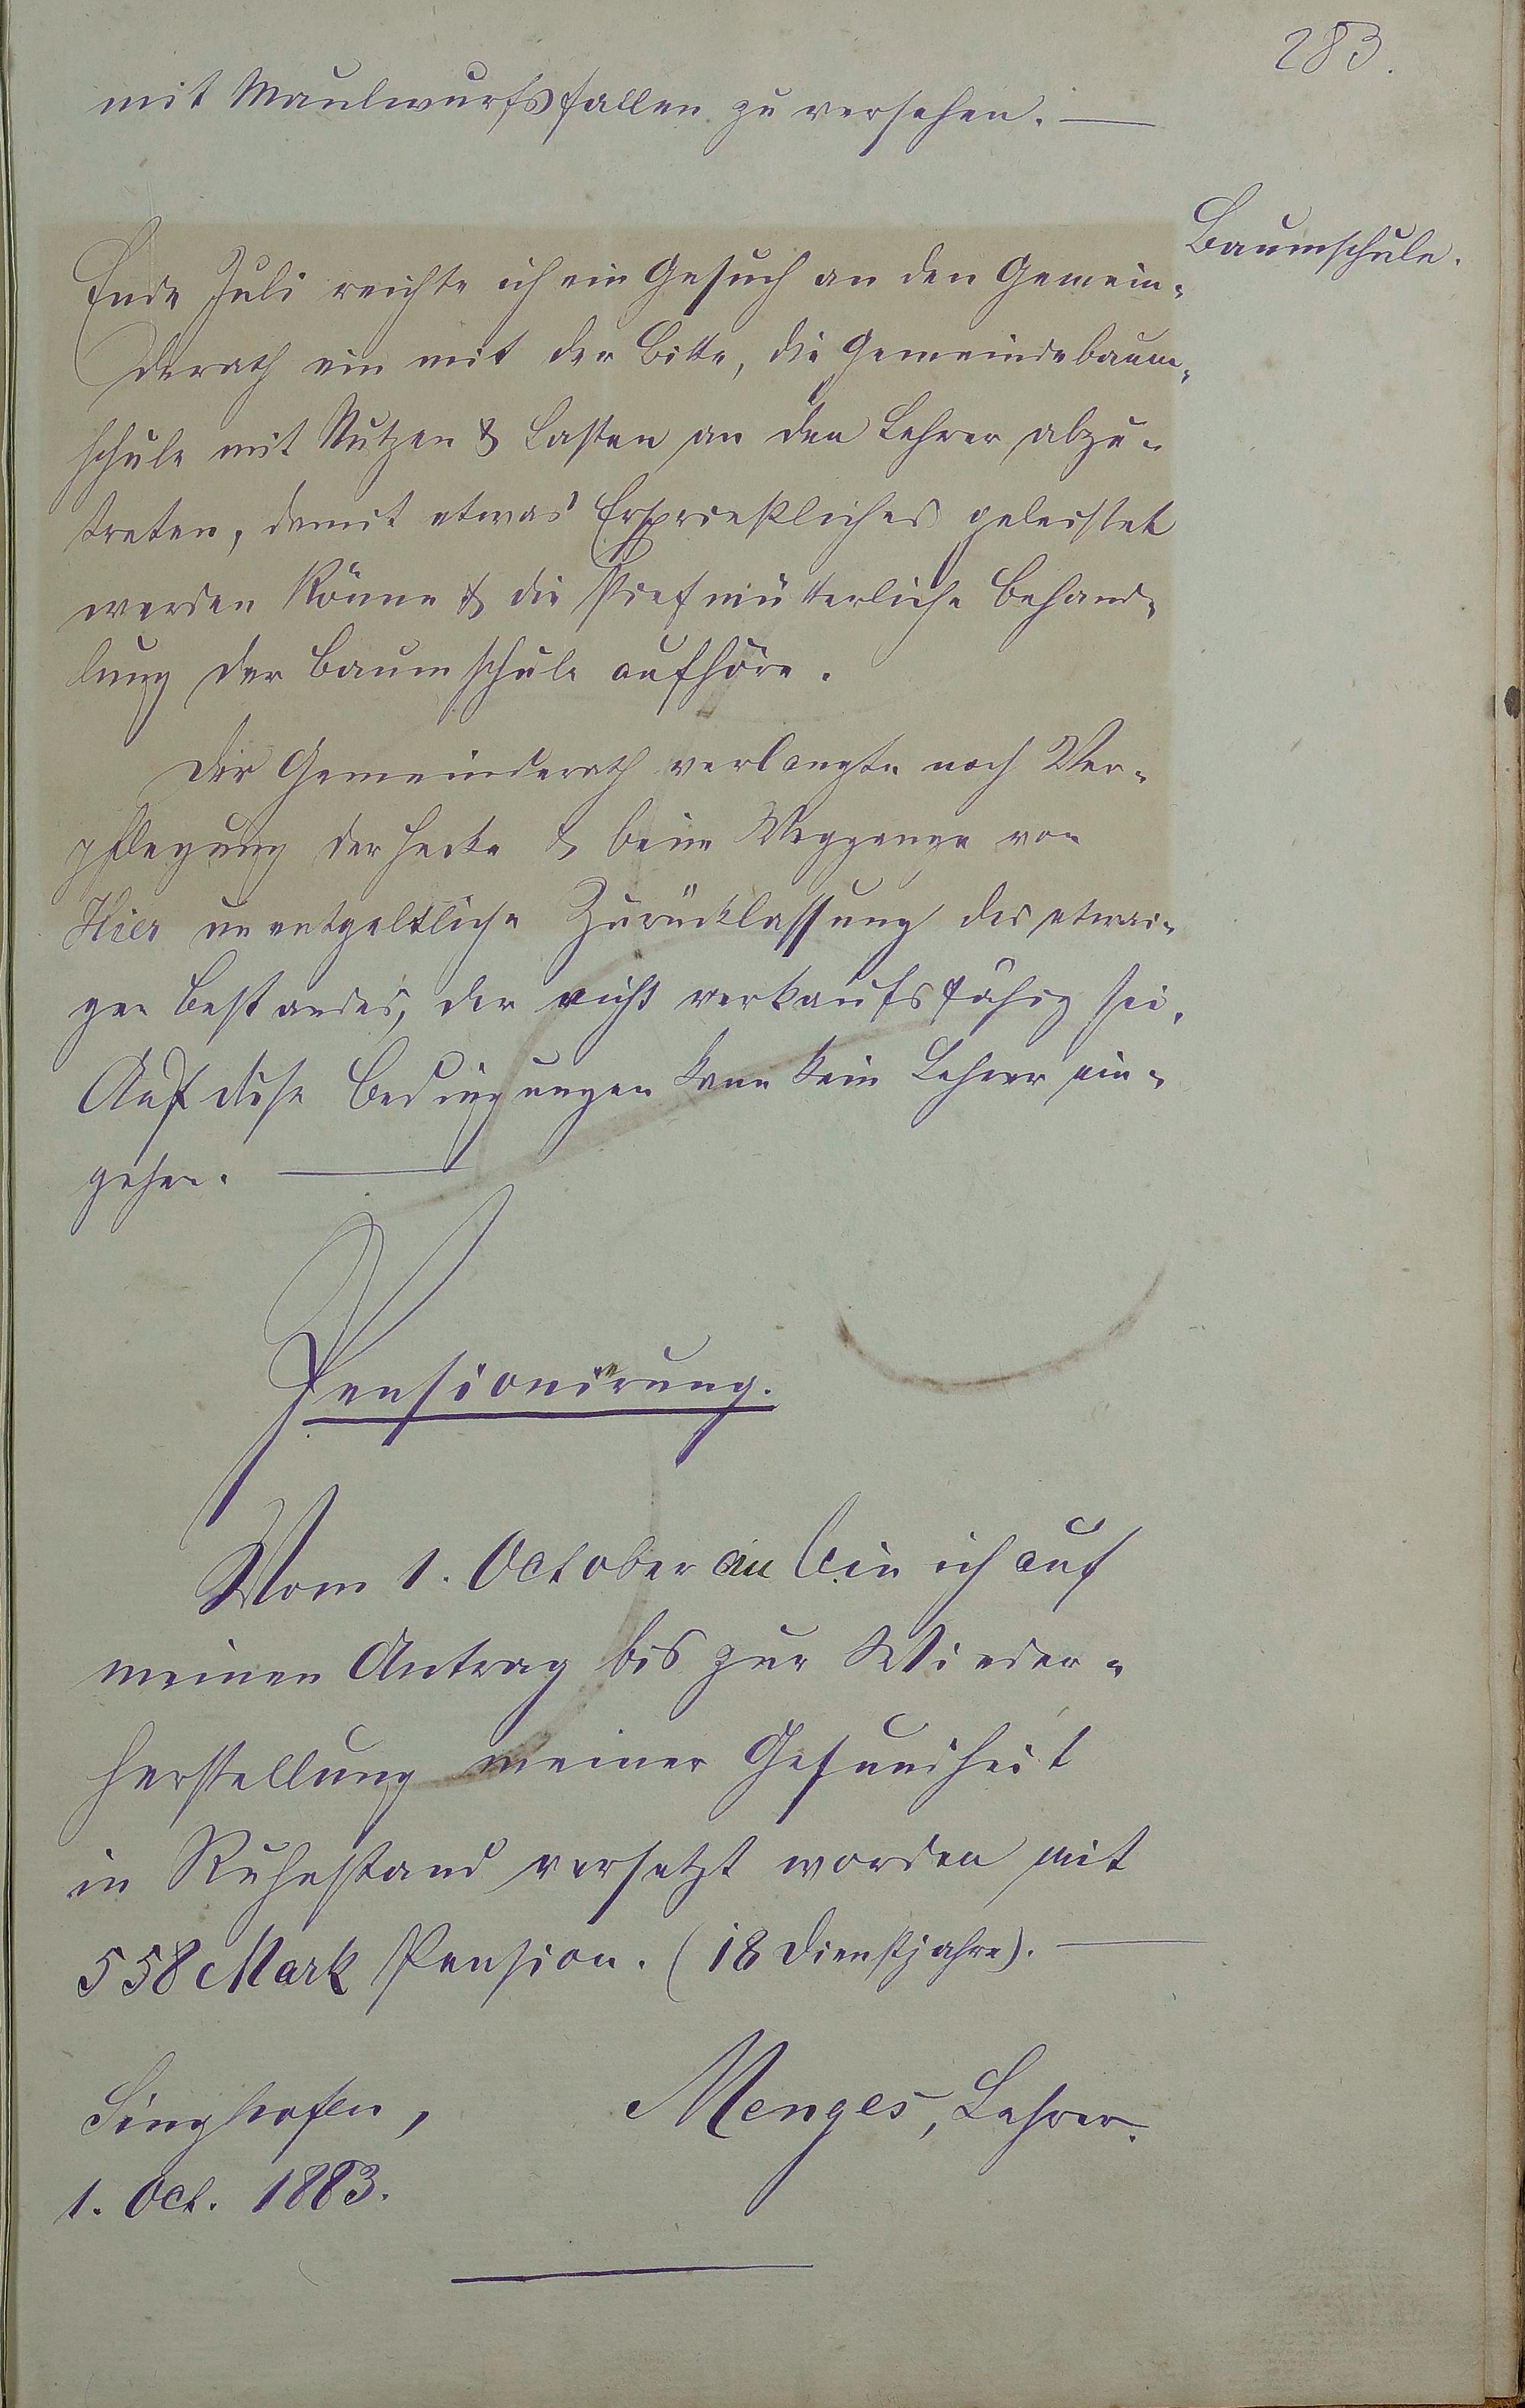 283.
mit Maulwurfsfallen zu versehen. —
Baumschule.
Ende Juli reichte ich ein Gesuch an den Gemein-
derath ein mit der Bitte, die Gemeindebaum-
schule mit Nutzen & Lasten an den Lehrer abzu-
treten, damit etwas Ersprießliches geleistet
werden könne & die stiefmütterliche Behand-
lung der Baumschule aufhöre.
Der Gemeinderath verlangte noch Ver-
pflegung der Hecke & beim Weggange von
Hier unentgeltliche Zurücklassung des etwai-
gen Bestandes, der nicht verkaufsfähig sei.
Auf diese Bedingungen kann kein Lehrer ein-
gehen. —
Pensionierung.
Vom 1. October an bin ich auf
meinen Antrag bis zur Wieder-
herstellung meiner Gesundheit
in Ruhestand versetzt worden mit
558 Mark Pension. (18 Dienstjahre). —
Singhofen, Menges, Lehrer.
1. Oct. 1883.